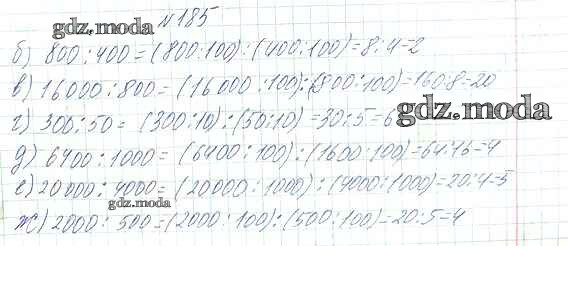 №185
gdz.moda
б) 800:400=(800:100):(400:100)=8:4=2
в) 16000:800=(16000:100):(800:100)=160:8=20
gdz.moda
г) 300:50=(300:10):(50:10)=30:5=6
д) 6400:1000=(6400:100):(1600:100)=64:16=4
е) 20000:4000=(20000:1000):(4000:1000)=20:4=5
gdz.moda
ж) 2000:500=(2000:100):(500:100)=20:5=4